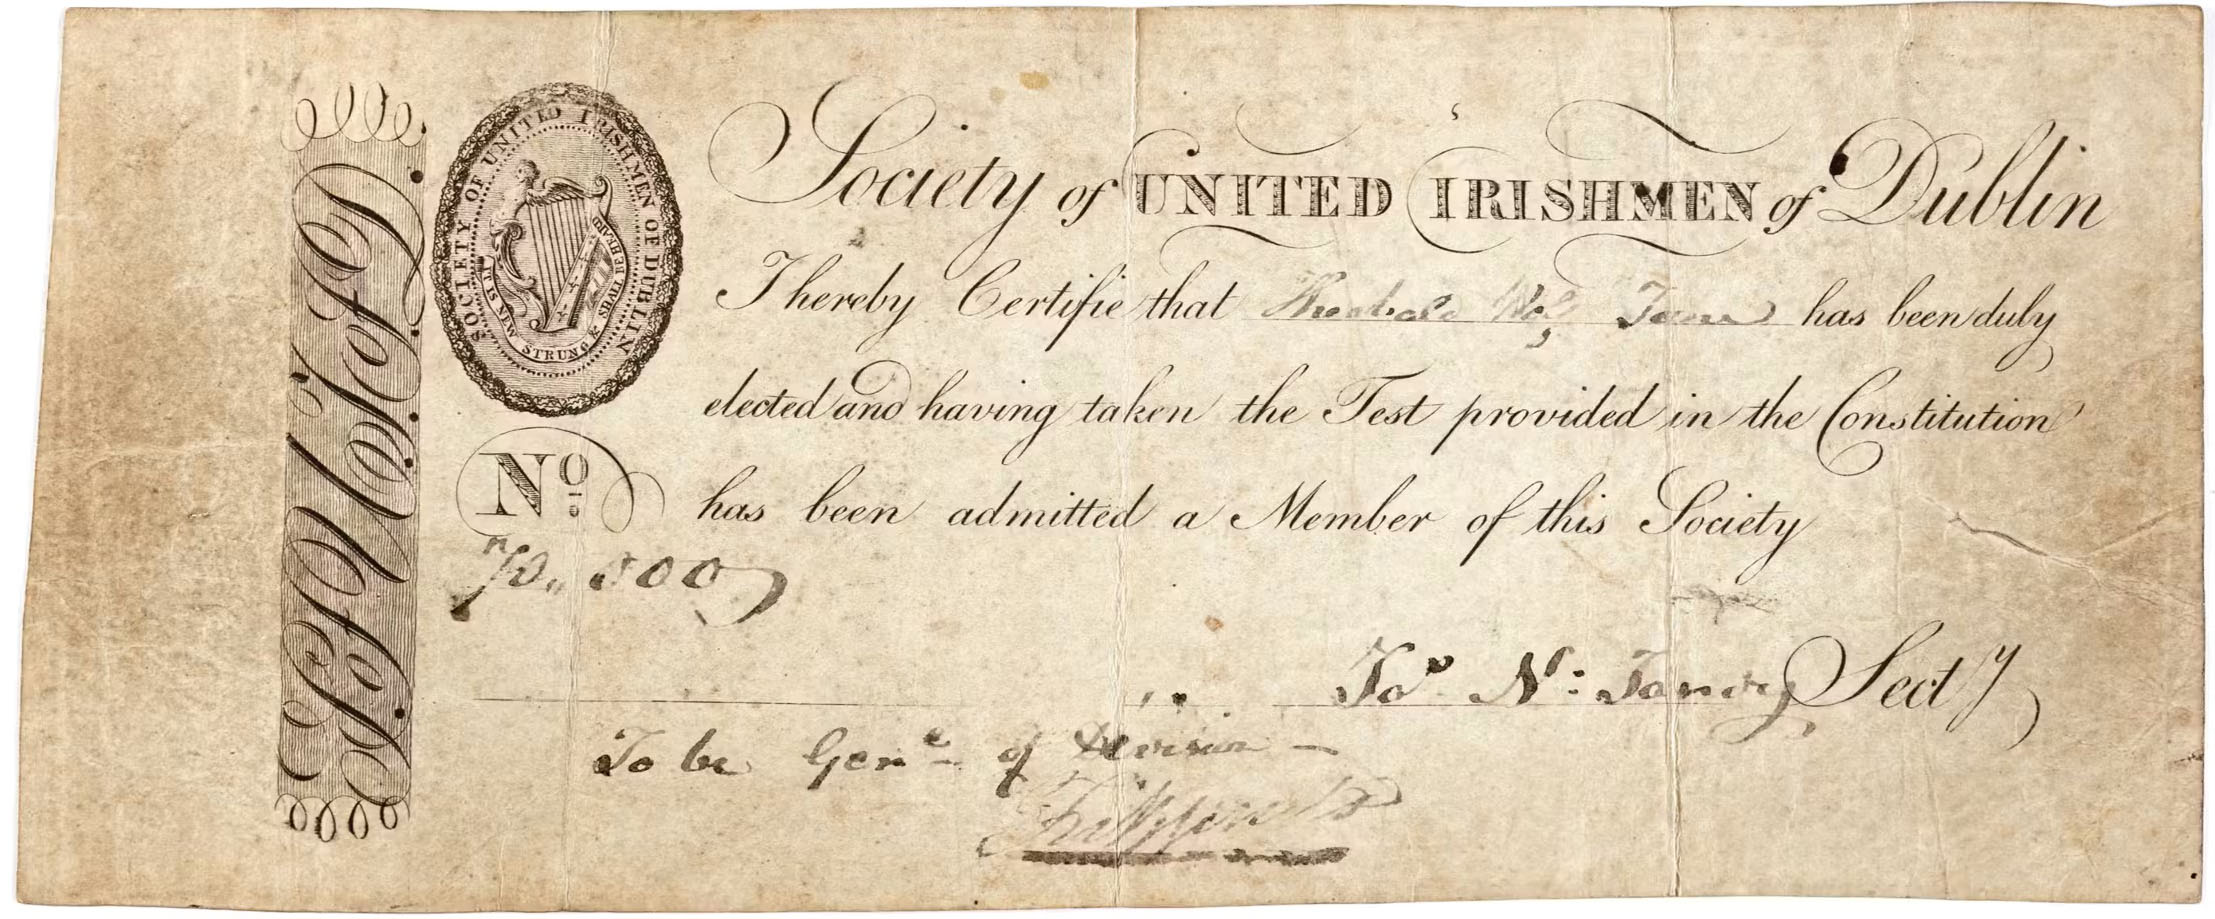 S.o.U.I.o.D.
SOCIETY OF UNITED IRISHMEN OF DUBLIN
IT IS NEW STRUNG & SHALL BE HEARD
Society of UNITED IRISHMEN of Dublin
I hereby Certifie that Theobald Wolf Tone has been duly
elected and having taken the Test provided in the Constitution
has been admitted a Member of this Society
No.
Jas. N: Tandy Secty
To be Genl. of Division –